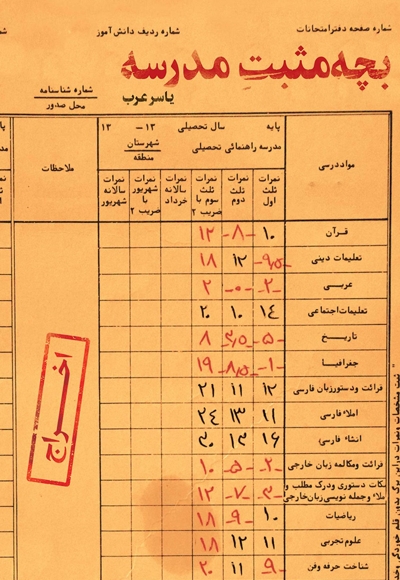 شماره صفحه دفتر امتحانات
شماره ردیف دانش‌آموز
بچه مثبتِ مدرسه
یاسر عرب
شماره شناسنامه
محل صدور
پایه سال تحصیلی ۱۳ – ۱۳
مدرسه راهنمائی تحصیلی شهرستان منطقه
مواد درسی
نمرات ثلث اول
نمرات ثلث دوم
نمرات ثلث سوم با ضریب ۲
نمرات سالانه خرداد
نمرات شهریور با ضریب ۲
نمرات سالانه شهریور
ملاحظات
قرآن ۱۰ -۸- ۱۲
تعلیمات دینی -۹٫۵- ۱۲ ۱۸
عربی -۲- -۰- ۲
تعلیمات اجتماعی ۱۴ ۱۰ ۲۰
تاریخ -۵- ۸
جغرافیا -۱- -۸٫۵- ۱۹
قرائت و دستور زبان فارسی ۱۲ ۱۱ ۲۱
املاء فارسی ۱۱ ۱۳ ۲۴
انشاء فارسی ۱۶
قرائت و مکالمه زبان خارجی -۲- -۵- ۱۰
نکات دستوری و درک مطلب و
املاء و جمله نویسی زبان خارجی -۷- ۱۲
ریاضیات ۱۰ -۹- ۱۸
علوم تجربی ۱۱ ۱۲ ۱۸
شناخت حرفه و فن -۹- ۱۱ ۲۰
اخراج